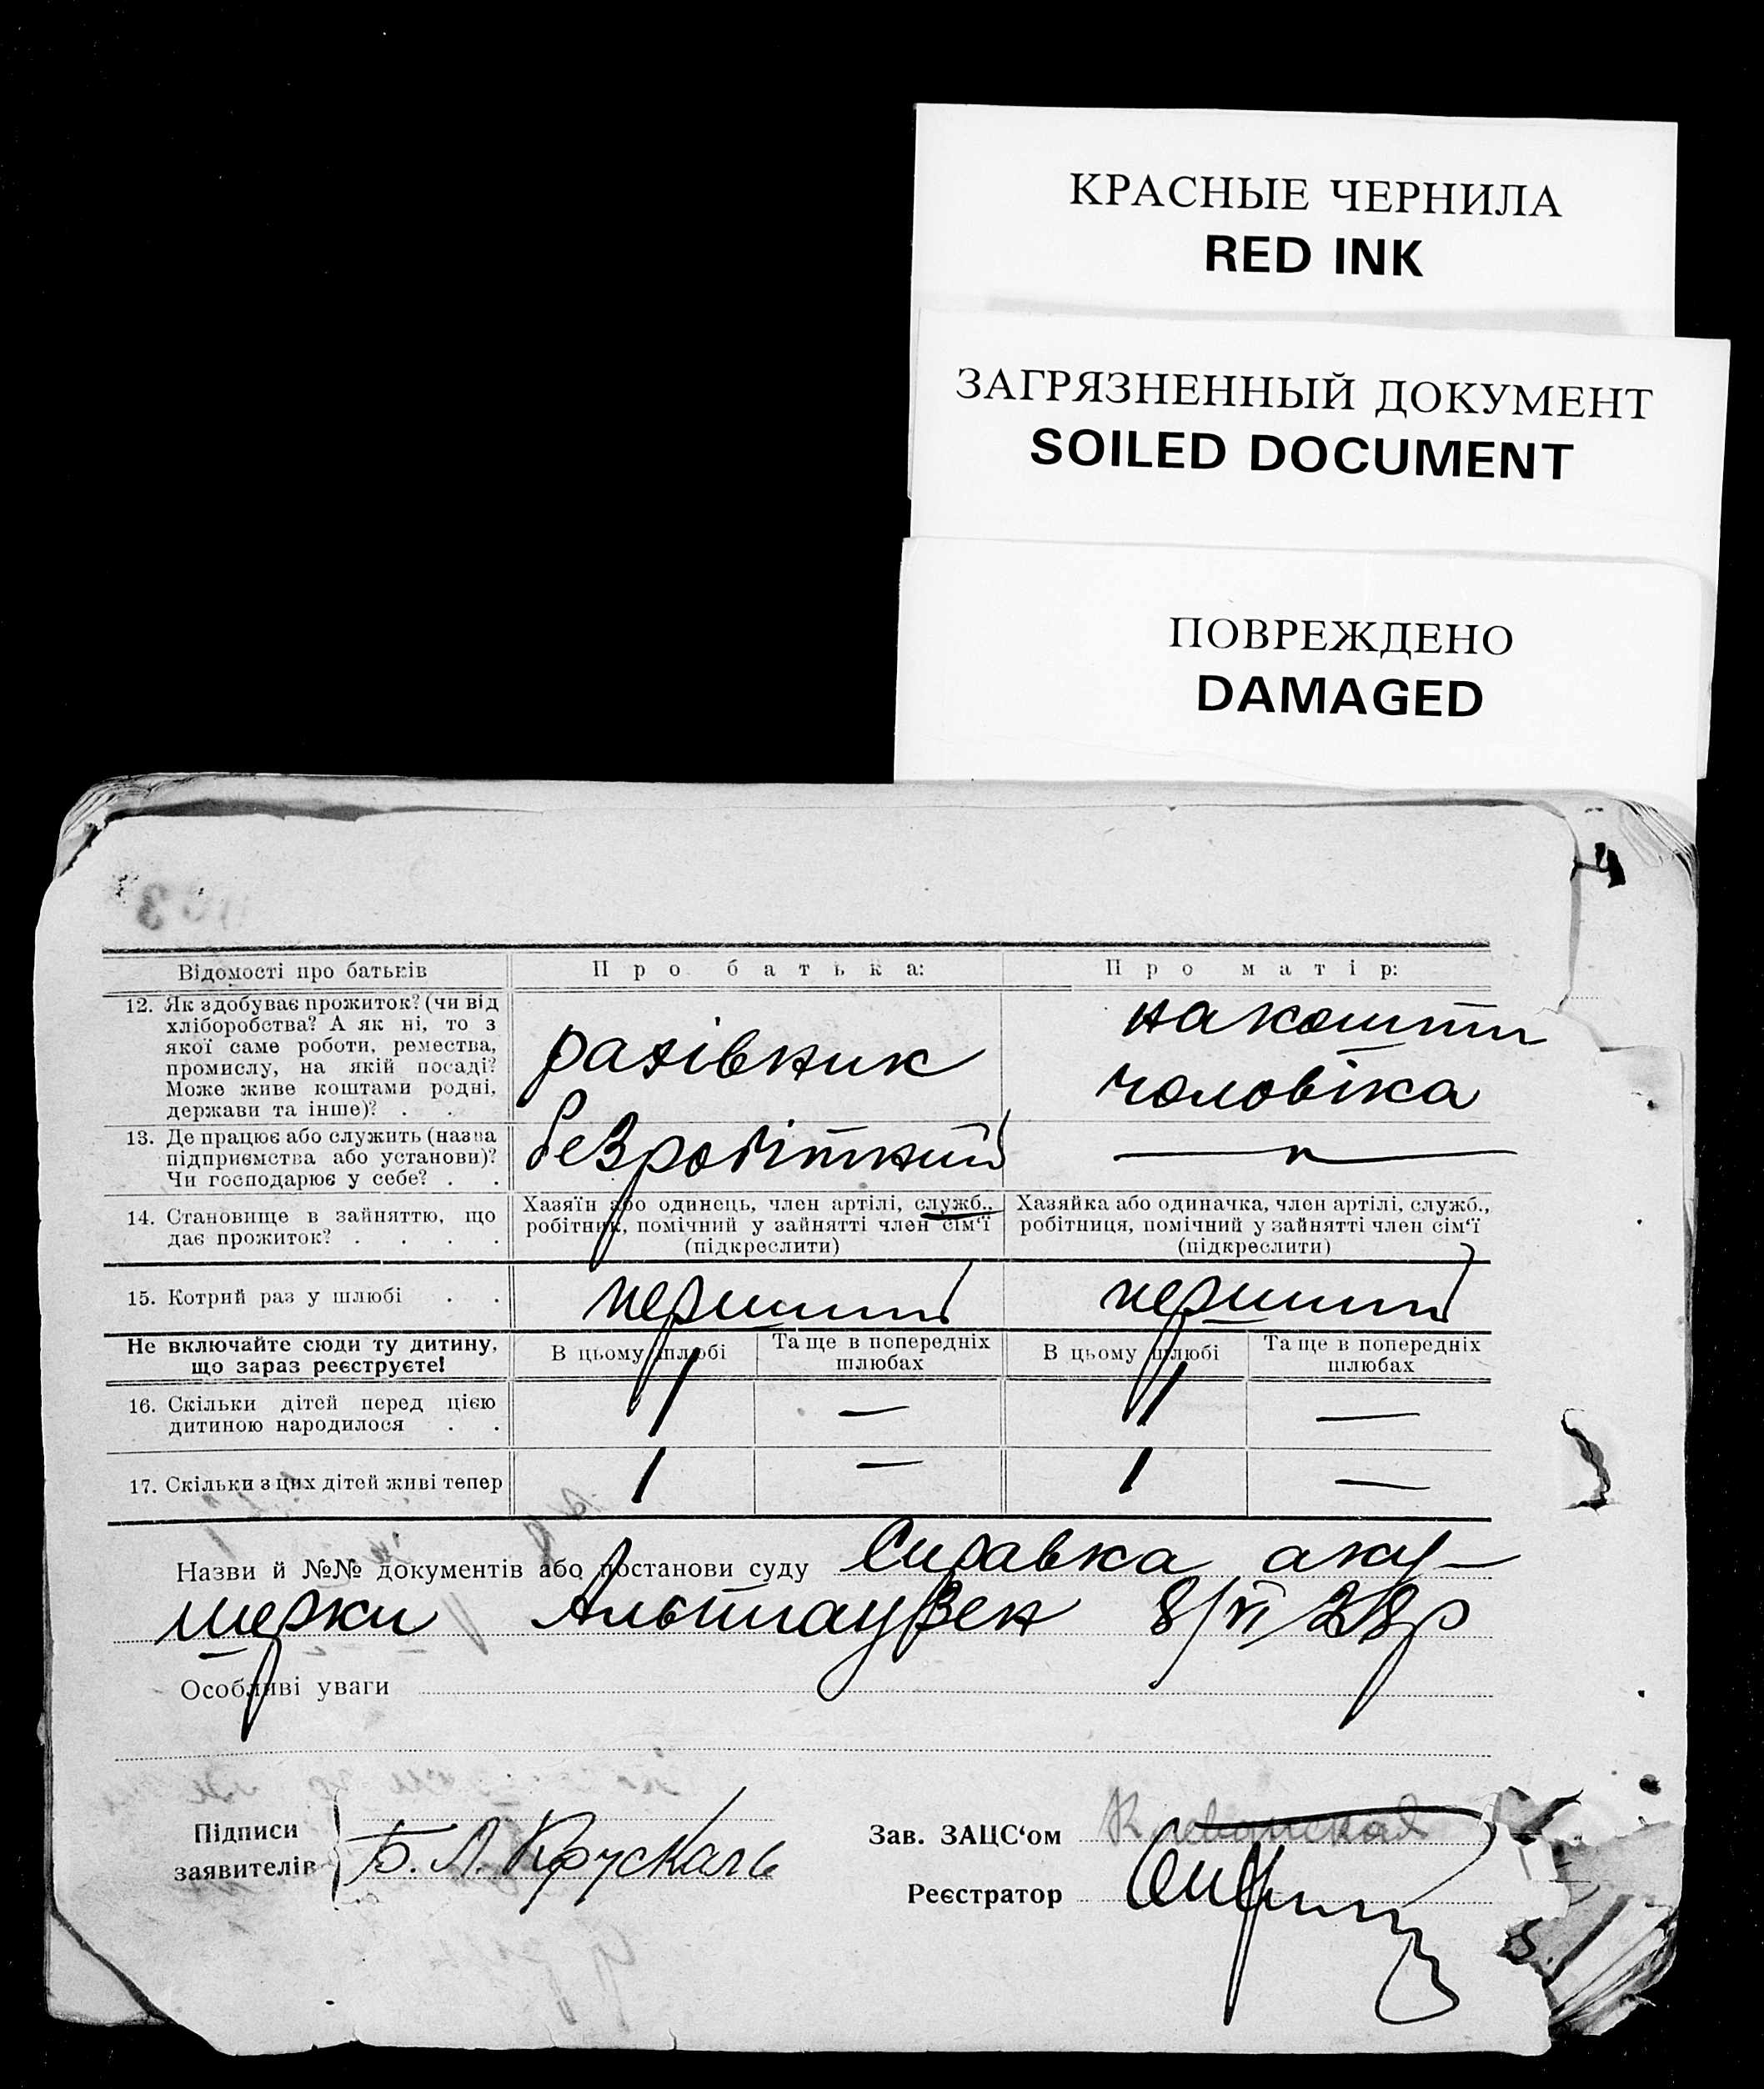 КРАСНЫЕ ЧЕРНИЛА
RED INK
ЗАГРЯЗНЕННЫЙ ДОКУМЕНТ
SOILED DOCUMENT
ПОВРЕЖДЕНО
DAMAGED
Відомості про батьків Про батька: Про матір:
12. Як здобуває прожиток? (чи від
хліборобства? А як ні, то з
якої саме роботи, ремества,
промислу, на якій посаді?
Може живе коштами родні,
держави та інше)? . .
рахівник
на кошти
чоловіка
13. Де працює або служить (назва
підприємства або установи)?
Чи господарює у себе? . .
безробітний
— „ —
14. Становище в зайняттю, що
дає прожиток? . . . .
Хазяїн або одинець, член артілі, служб.,
робітник, помічний у зайнятті член сім'ї
(підкреслити)
Хазяйка або одиначка, член артілі, служб.,
робітниця, помічний у зайнятті член сім'ї
(підкреслити)
15. Котрий раз у шлюбі . . перший перший
Не включайте сюди ту дитину,
що зараз реєструєте!
В цьому шлюбі
Та ще в попередніх
шлюбах
В цьому шлюбі
Та ще в попередніх
шлюбах
16. Скільки дітей перед цією
дитиною народилося . .
1 — 1 —
17. Скільки з цих дітей живі тепер 1 — 1 —
Назви й №№ документів або постанови суду Справка аку-
шерки Альтгаузен 8/VI 28р
Особливі уваги
Підписи
заявителів
Б. Л. Крускаль
Зав. ЗАЦС'ом
Реєстратор